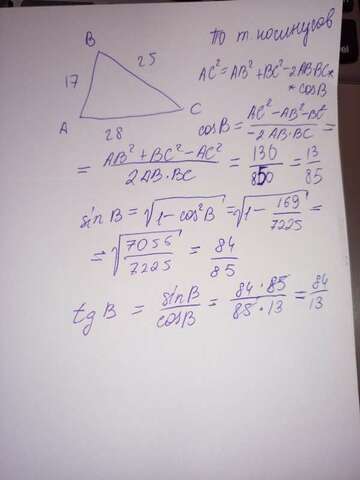 B
25
По т косинусов
17
AC² = AB² + BC² - 2AB·BC*
* cosB
A
C
28
cosB = \frac{AC² - AB² - BC²}{-2AB·BC} =
= \frac{AB² + BC² - AC²}{2AB·BC} = \frac{130}{850} = \frac{13}{85}
sinB = \sqrt{1 - cos²B} = \sqrt{1 - \frac{169}{7225}} =
= \sqrt{\frac{7056}{7225}} = \frac{84}{85}
tgB = \frac{sinB}{cosB} = \frac{84·85}{85·13} = \frac{84}{13}